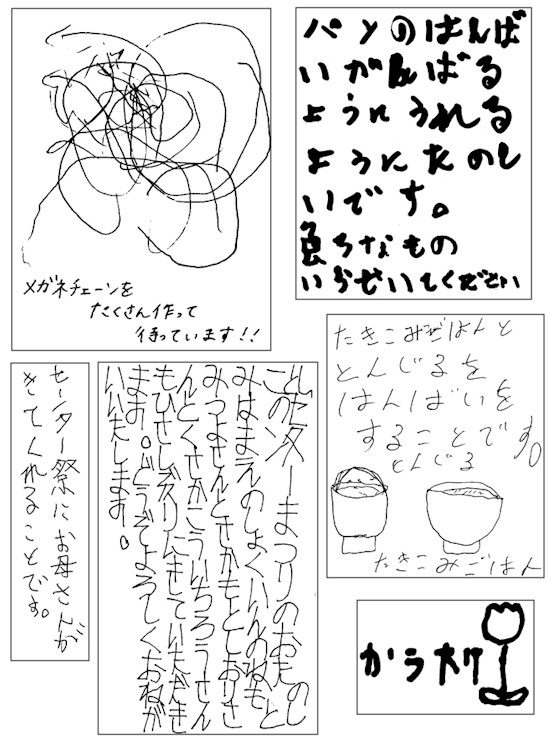 メガネチェーンを
たくさん作って
待っています!!
パンのはんば
いがんばる
ようにうれる
ようにたのし
いです。
なもの
ください
たきこみごはんと
とんじるを
はんばいを
することです。
とんじる
たきこみごはん
センター祭にお母さんが
きてくれることです。
センターまつりのおたのし
みはまえのしょくいんのねもと
みつよさんとさかもととしおりさ
んとくさかこういちろうさん
もひさしぶりにきていただき
ます。どうぞよろしくおねが
いいたします。
かう